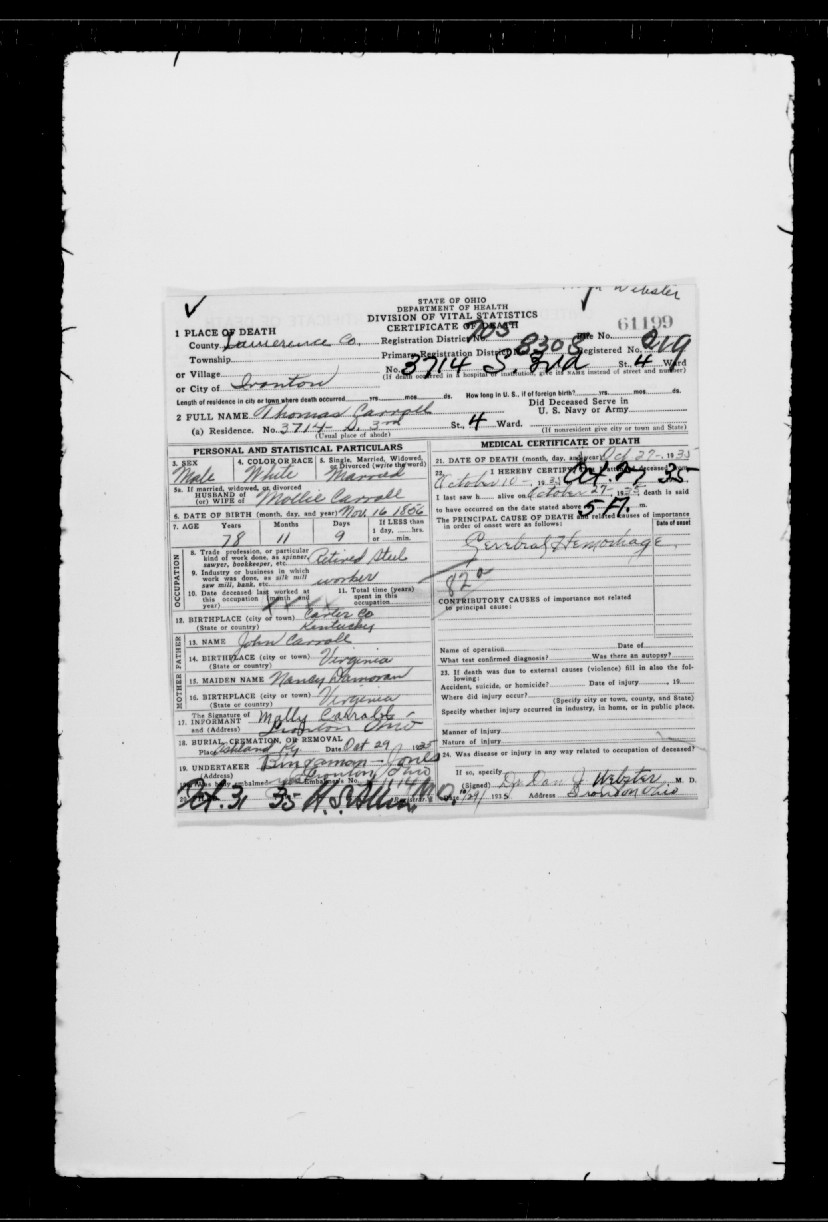 Webster
STATE OF OHIO
DEPARTMENT OF HEALTH
DIVISION OF VITAL STATISTICS
CERTIFICATE OF DEATH
61199
1 PLACE OF DEATH
County Lawrence Co. Registration District No. 705 File No.
Township Primary Registration District No. 8308 Registered No. 219
or Village No. 3714 S. 3rd St., 4 Ward
(If death occurred in a hospital or institution, give its NAME instead of street and number)
or City of Ironton
Length of residence in city or town where death occurred yrs. mos. ds. How long in U. S., if of foreign birth? yrs. mos. ds.
2 FULL NAME Thomas Carroll
Did Deceased Serve in
U. S. Navy or Army
(a) Residence. No. 3714 - S. 3rd St., 4 Ward.
(Usual place of abode) (If nonresident give city or town and State)
PERSONAL AND STATISTICAL PARTICULARS
3. SEX Male
4. COLOR OR RACE White
5. Single, Married, Widowed, or Divorced (write the word) Married
5a. If married, widowed, or divorced
HUSBAND of
(or) WIFE of Mollie Carroll
6. DATE OF BIRTH (month, day, and year) Nov 16 1856
7. AGE Years Months Days If LESS than
1 day, hrs.
or min.
78 11 9
OCCUPATION
8. Trade profession, or particular
kind of work done, as spinner,
sawyer, bookkeeper, etc. Retired Steel
9. Industry or business in which
work was done, as silk mill
saw mill, bank, etc. worker
10. Date deceased last worked at
this occupation (month and
year)
11. Total time (years)
spent in this
occupation
12. BIRTHPLACE (city or town) Carter Co
(State or country) Kentucky
FATHER
13. NAME John Carroll
14. BIRTHPLACE (city or town) Virginia
(State or country)
MOTHER
15. MAIDEN NAME Nancy
16. BIRTHPLACE (city or town) Virginia
(State or country)
The Signature of
17. INFORMANT Molly Carroll
and (Address) Ironton Ohio
18. BURIAL, CREMATION, OR REMOVAL
Place Ashland Ky. Date Oct 29, 1935
19. UNDERTAKER Bingaman - Jones
(Address) Ironton, Ohio
Was body embalmed yes Embalmer's No.
20. Oct. 31 35 H. S. Allen M.D.
Registrar.
MEDICAL CERTIFICATE OF DEATH
21. DATE OF DEATH (month, day, and year) Oct 27 - 1935
22. I HEREBY CERTIFY, That I attended deceased from
October 10 -, 1935 Oct. 27 35
I last saw h alive on October 27 - 1935 death is said
to have occurred on the date stated above 5 A. m.
The PRINCIPAL CAUSE OF DEATH and related causes of importance
in order of onset were as follows:
Date of onset
Cerebral Hemorhage
82a
CONTRIBUTORY CAUSES of importance not related
to principal cause:
Name of operation Date of
What test confirmed diagnosis? Was there an autopsy?
23. If death was due to external causes (violence) fill in also the fol-
lowing:
Accident, suicide, or homicide? Date of injury , 19
Where did injury occur?
(Specify city or town, county, and State)
Specify whether injury occurred in industry, in home, or in public place.
Manner of injury
Nature of injury
24. Was disease or injury in any way related to occupation of deceased?
If so, specify
(Signed) Dr Dan J. Webster M. D.
Date /29/ 1935 Address Ironton Ohio